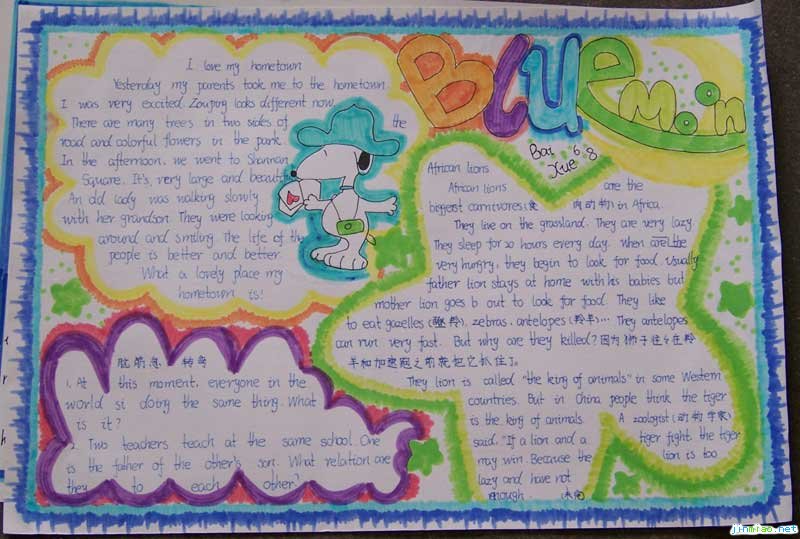 BLUE Moon
Bai 6.8
Xue
I love my hometown
Yesterday my parents took me to the hometown.
I was very excited. Zouping looks different now.
There are many trees in two sides of the
road and colorful flowers in the park.
In the afternoon, we went to Shannan
Square. It's, very large and beautiful
An old lady was walking slowly
with her grandson. They were looking
around and smiling. The life of the
people is better and better.
What a lovely place my
hometown is!
脑筋急 转弯
1. At this moment, everyone in the
world si doing the same thing. What
is it?
2. Two teachers teach at the same school. One
is the father of the other's son. What relation are
they to each other?
African lions
African lions are the
biggest carnivores(食 肉动物) in Africa.
They live on the grassland. They are very lazy.
They sleep for 20 hours every day. When are the
very hungry, they begin to look for food. Usually
father lion stays at home with his babies but
mother lion goes b out to look for food. They like
to eat gazelles (瞪羚), zebras, antelopes (羚羊)... They antelopes
can run very fast. But why are they killed? 因为狮子往往在羚
羊和加速冠之前就把它抓住了。
They lion is called "the king of animals" in some Western
countries. But in China people think the tiger
is the king of animals. A zoologist (动物学家)
said. "If a lion and a tiger fight, the tiger
may win. Because the lion is too
lazy and have not
enough